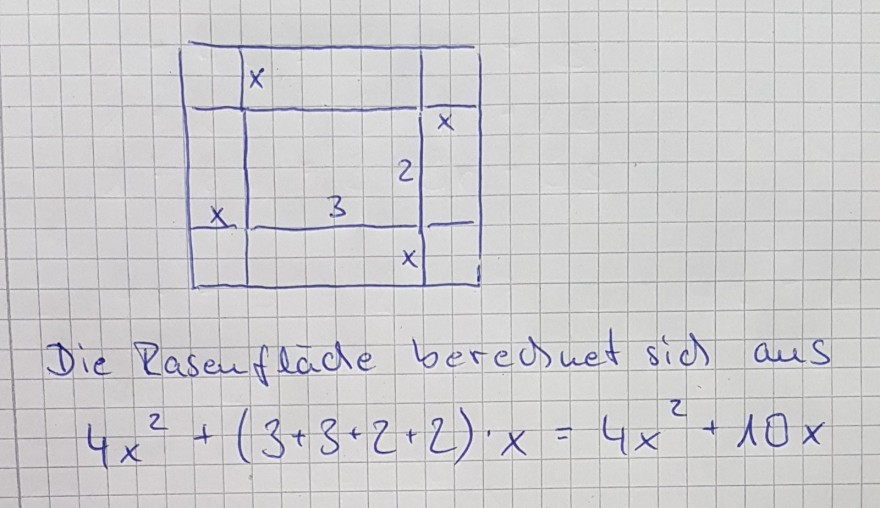 x
x
2
3
x
x
Die Rasenfläche berechnet sich aus
4x² + (3+3+2+2)·x = 4x² + 10x